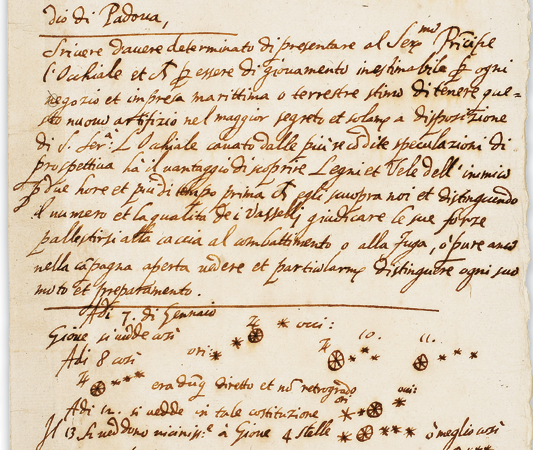 dio di Padova,
Scrivere d'avere determinato di presentare al Ser.mo Principe
l'Occhiale et ꝑ essere di giovamento inestimabile ꝑ ogni
negozio et impresa marittima o terrestre stimo di tenere que-
sto nuovo artifizio nel maggior segreto et solam.e a disposizione
di S. Ser.a L'Occhiale cavato dalle più recōdite speculazioni di
prospettiva ha il vantaggio di scoprire Legni et Vele dell'inimico
ꝑ due hore et più di tempo prima egli scuopra noi et distinguendo
il numero et la qualità de i Vasselli giudicare le sue forze
pallestirsi alla caccia al combattimento o alla fuga, o pure anco
nella cāpagna aperta vedere et particularm.e distinguere ogni suo
moto et preparamento.
Adì 7. di Gennaio
Giove si vedde così ori: occi:
Adì 8 così 10. 11.
era dūq diretto et nō retrogrado
Adì 12. si vedde in tale costituzione ori: occi:
Il 13 si veddono viciniss.e à Giove 4 stelle ò meglio così